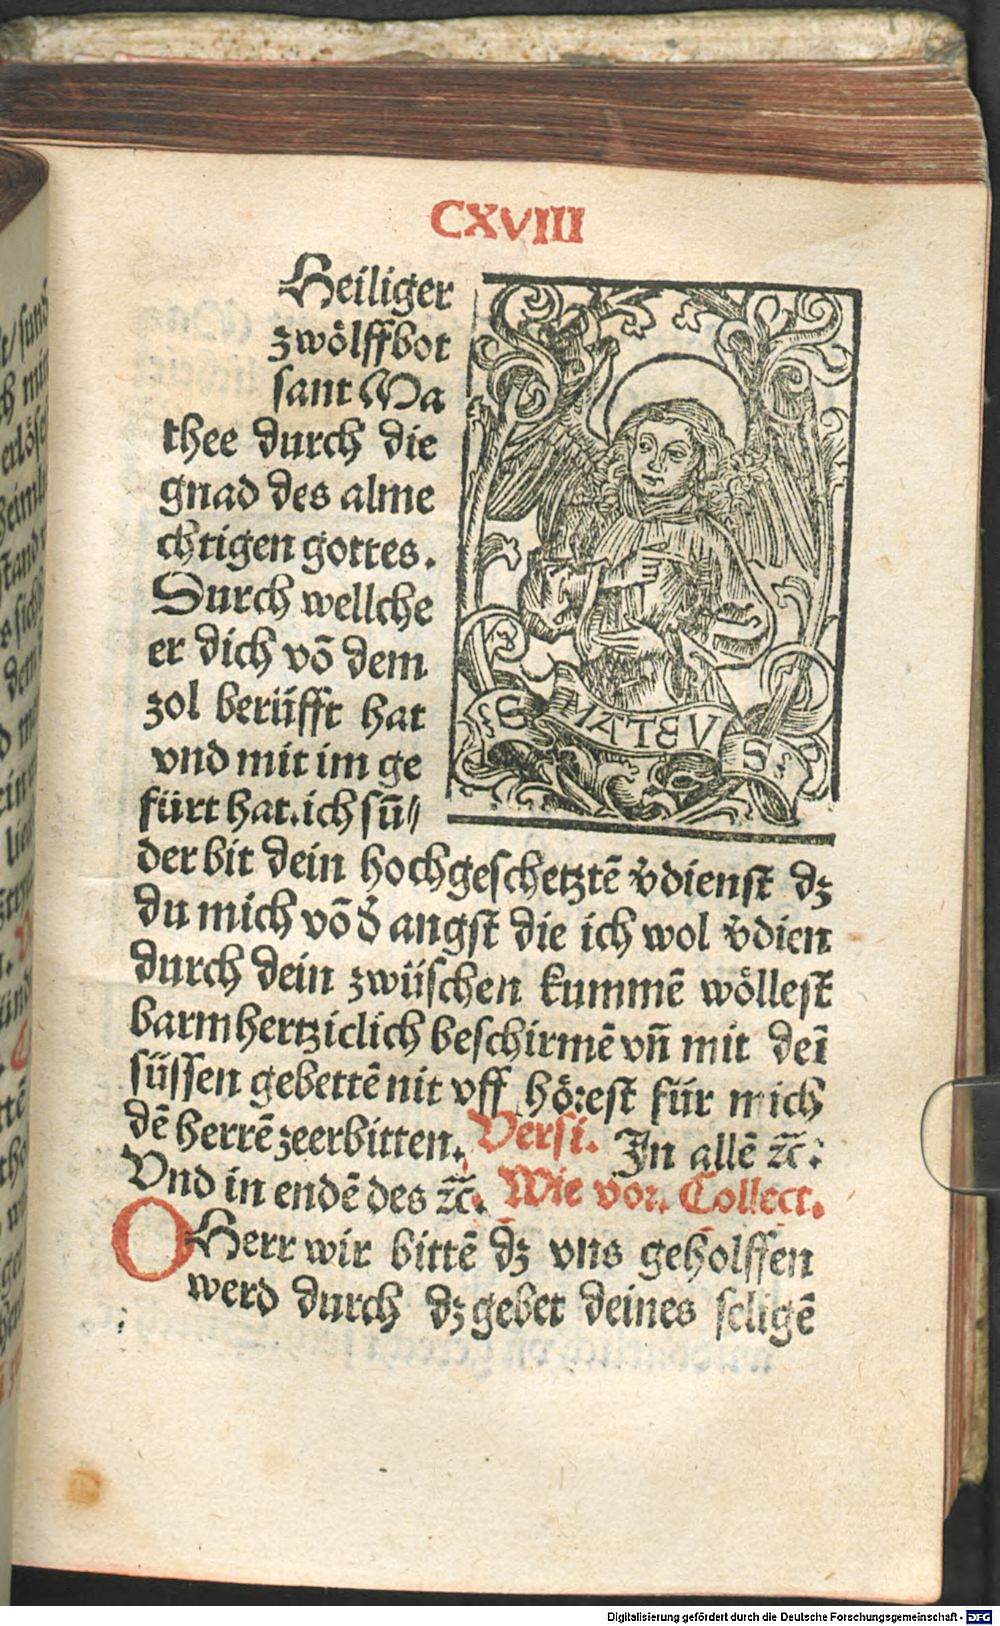 CXVIII
Heiliger
zwölffbot
sant Ma
thee durch die
gnad des alme
chtigen gottes.
Durch wellche
er dich võ dem
zol berüfft hat
vnd mit im ge
fürt hat. ich sü̃⸗
S MATEVS
der bit dein hochgeschetztẽ v̾dienst dz
du mich võ d̾ angst die ich wol v̾dien
durch dein zwüschen kummẽ wöllest
barmhertziclich beschirmẽ vñ mit deĩ
süssen gebettẽ nit vff hörest für mich
dẽ herrẽ zeerbitten. Versi. In allẽ ⁊c̃:
Vnd in endẽ des ⁊c̃. Wie vor. Collect.
O Herr wir bittẽ dz vns geholffen
werd durch dz gebet deines seligẽ
Digitalisierung gefördert durch die Deutsche Forschungsgemeinschaft - DFG